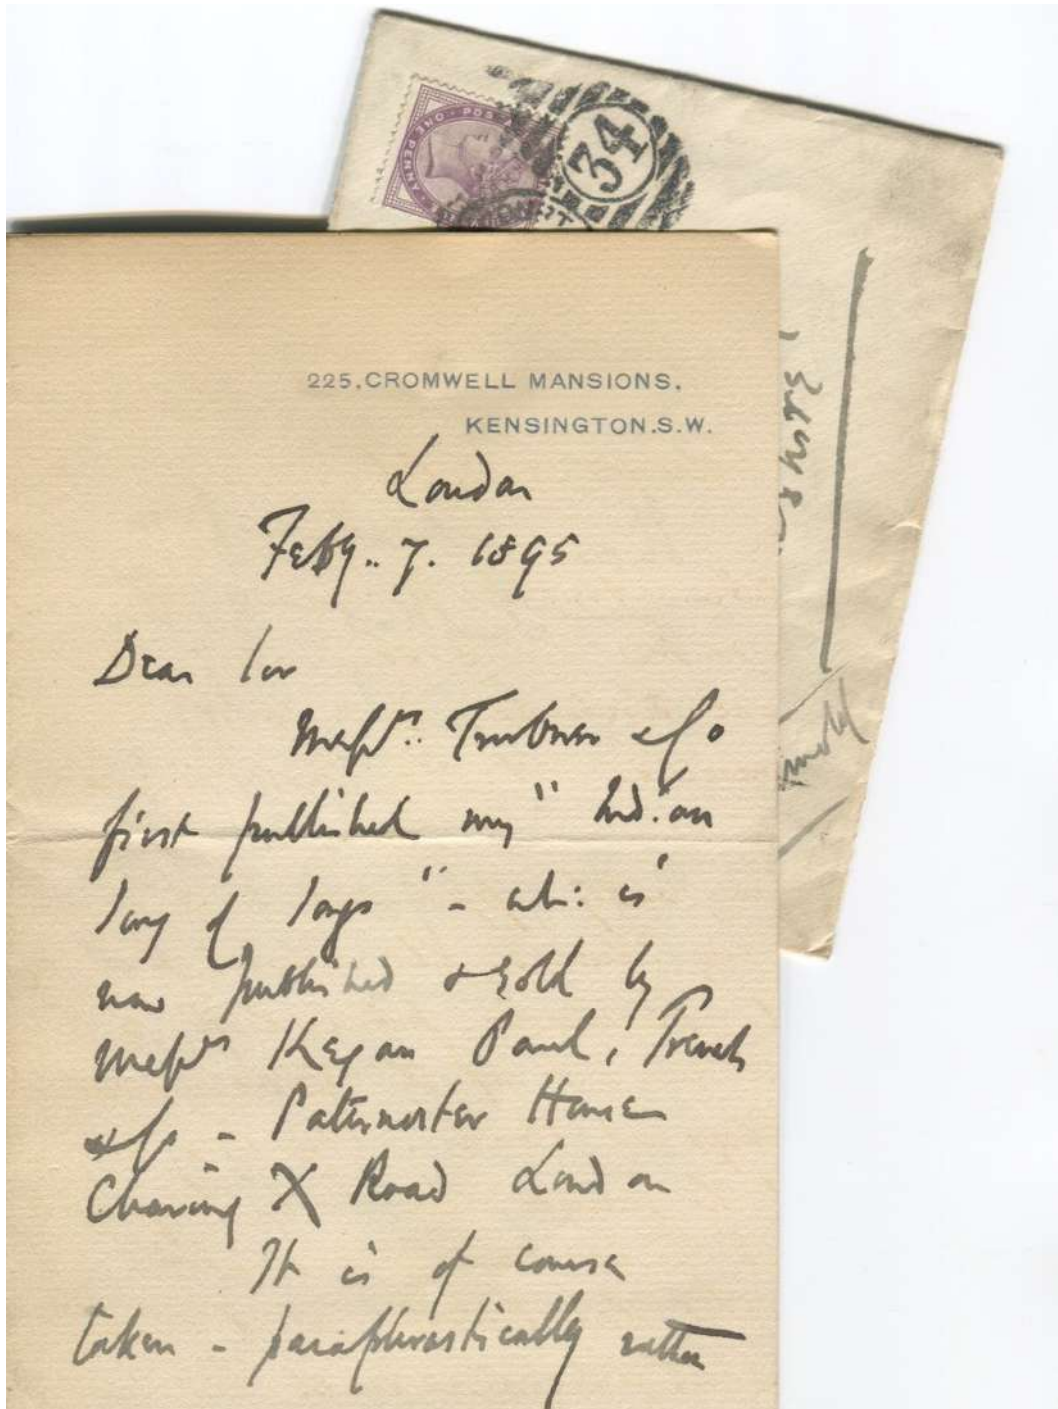 ONE PENNY
POS
34
225, CROMWELL MANSIONS,
KENSINGTON. S.W.
London
Feby.. 7. 1895
Dear Sir
Messrs.. Trubner & Co
first published my "Indian
Song of Songs" - wh: is
now published & sold by
Messrs Kegan Paul, Trench
& Co - Paternoster House
Charing X Road London
It is of course
taken - paraphrastically rather